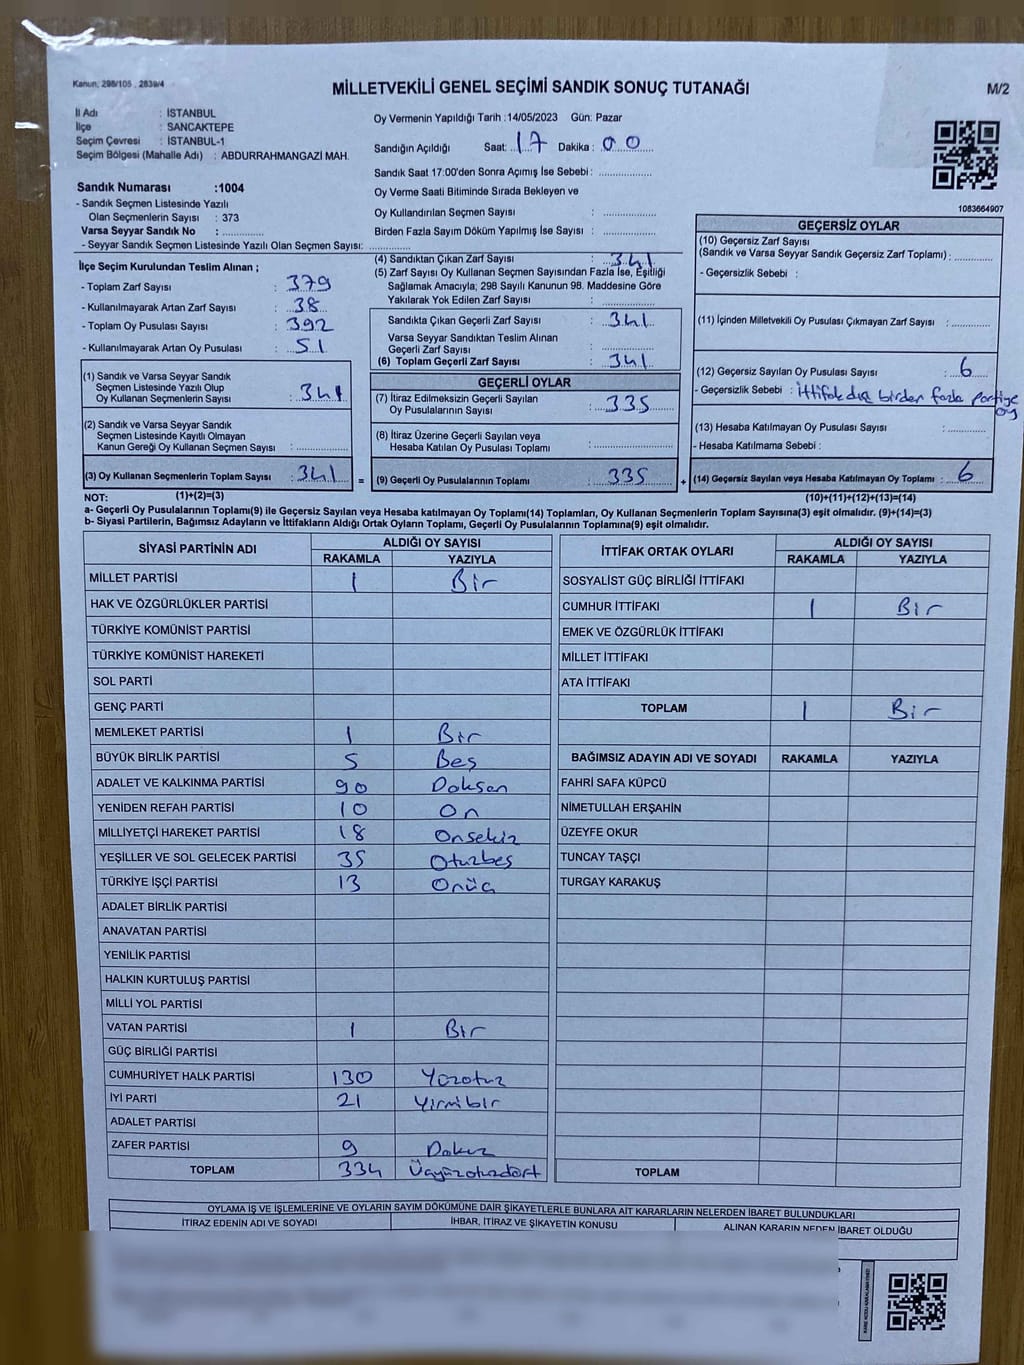 Kanun, 298/105 , 2839/4
MİLLETVEKİLİ GENEL SEÇİMİ SANDIK SONUÇ TUTANAĞI
M/2
İl Adı : İSTANBUL
İlçe : SANCAKTEPE
Seçim Çevresi : İSTANBUL-1
Seçim Bölgesi (Mahalle Adı) : ABDURRAHMANGAZİ MAH.
Oy Vermenin Yapıldığı Tarih :14/05/2023 Gün: Pazar
Sandığın Açıldığı Saat: 17 Dakika : 00
Sandık Saat 17:00'den Sonra Açımış İse Sebebi :
Oy Verme Saati Bitiminde Sırada Bekleyen ve
Oy Kullandırılan Seçmen Sayısı :
Birden Fazla Sayım Döküm Yapılmış İse Sayısı :
1083664907
Sandık Numarası :1004
- Sandık Seçmen Listesinde Yazılı
Olan Seçmenlerin Sayısı : 373
Varsa Seyyar Sandık No :
- Seyyar Sandık Seçmen Listesinde Yazılı Olan Seçmen Sayısı:
İlçe Seçim Kurulundan Teslim Alınan ;
- Toplam Zarf Sayısı : 379
- Kullanılmayarak Artan Zarf Sayısı : 38
- Toplam Oy Pusulası Sayısı : 392
- Kullanılmayarak Artan Oy Pusulası : 51
(1) Sandık ve Varsa Seyyar Sandık
Seçmen Listesinde Yazılı Olup
Oy Kullanan Seçmenlerin Sayısı : 341
(2) Sandık ve Varsa Seyyar Sandık
Seçmen Listesinde Kayıtlı Olmayan
Kanun Gereği Oy Kullanan Seçmen Sayısı :
(3) Oy Kullanan Seçmenlerin Toplam Sayısı : 341 =
(4) Sandıktan Çıkan Zarf Sayısı : 341
(5) Zarf Sayısı Oy Kullanan Seçmen Sayısından Fazla İse, Eşitliği
Sağlamak Amacıyla; 298 Sayılı Kanunun 98. Maddesine Göre
Yakılarak Yok Edilen Zarf Sayısı :
Sandıkta Çıkan Geçerli Zarf Sayısı : 341
Varsa Seyyar Sandıktan Teslim Alınan
Geçerli Zarf Sayısı :
(6) Toplam Geçerli Zarf Sayısı : 341
GEÇERLİ OYLAR
(7) İtiraz Edilmeksizin Geçerli Sayılan
Oy Pusulalarının Sayısı : 335
(8) İtiraz Üzerine Geçerli Sayılan veya
Hesaba Katılan Oy Pusulası Toplamı :
(9) Geçerli Oy Pusulalarının Toplamı : 335 +
GEÇERSİZ OYLAR
(10) Geçersiz Zarf Sayısı
(Sandık ve Varsa Seyyar Sandık Geçersiz Zarf Toplamı) :
- Geçersizlik Sebebi :
(11) İçinden Milletvekili Oy Pusulası Çıkmayan Zarf Sayısı :
(12) Geçersiz Sayılan Oy Pusulası Sayısı : 6
- Geçersizlik Sebebi : ittifak dışı birden fazla partiye
oy
(13) Hesaba Katılmayan Oy Pusulası Sayısı :
- Hesaba Katılmama Sebebi :
(14) Geçersiz Sayılan veya Hesaba Katılmayan Oy Toplamı : 6
NOT: (1)+(2)=(3)
(10)+(11)+(12)+(13)=(14)
a- Geçerli Oy Pusulalarının Toplamı(9) ile Geçersiz Sayılan veya Hesaba katılmayan Oy Toplamı(14) Toplamları, Oy Kullanan Seçmenlerin Toplam Sayısına(3) eşit olmalıdır. (9)+(14)=(3)
b- Siyasi Partilerin, Bağımsız Adayların ve İttifakların Aldığı Ortak Oyların Toplamı, Geçerli Oy Pusulalarının Toplamına(9) eşit olmalıdır.
SİYASİ PARTİNİN ADI ALDIĞI OY SAYISI
RAKAMLA YAZIYLA
MİLLET PARTİSİ 1 Bir
HAK VE ÖZGÜRLÜKLER PARTİSİ
TÜRKİYE KOMÜNİST PARTİSİ
TÜRKİYE KOMÜNİST HAREKETİ
SOL PARTİ
GENÇ PARTİ
MEMLEKET PARTİSİ 1 Bir
BÜYÜK BİRLİK PARTİSİ 5 Beş
ADALET VE KALKINMA PARTİSİ 90 Doksan
YENİDEN REFAH PARTİSİ 10 On
MİLLİYETÇİ HAREKET PARTİSİ 18 Onsekiz
YEŞİLLER VE SOL GELECEK PARTİSİ 35 Otuzbeş
TÜRKİYE İŞÇİ PARTİSİ 13 Onüç
ADALET BİRLİK PARTİSİ
ANAVATAN PARTİSİ
YENİLİK PARTİSİ
HALKIN KURTULUŞ PARTİSİ
MİLLİ YOL PARTİSİ
VATAN PARTİSİ 1 Bir
GÜÇ BİRLİĞİ PARTİSİ
CUMHURİYET HALK PARTİSİ 130 Yüzotuz
İYİ PARTİ 21 Yirmibir
ADALET PARTİSİ
ZAFER PARTİSİ 9 Dokuz
TOPLAM 334 Üçyüzotuzdört
İTTİFAK ORTAK OYLARI ALDIĞI OY SAYISI
RAKAMLA YAZIYLA
SOSYALİST GÜÇ BİRLİĞİ İTTİFAKI
CUMHUR İTTİFAKI 1 Bir
EMEK VE ÖZGÜRLÜK İTTİFAKI
MİLLET İTTİFAKI
ATA İTTİFAKI
TOPLAM 1 Bir
BAĞIMSIZ ADAYIN ADI VE SOYADI RAKAMLA YAZIYLA
FAHRİ SAFA KÜPCÜ
NİMETULLAH ERŞAHİN
ÜZEYFE OKUR
TUNCAY TAŞÇI
TURGAY KARAKUŞ
TOPLAM
OYLAMA İŞ VE İŞLEMLERİNE VE OYLARIN SAYIM DÖKÜMÜNE DAİR ŞİKAYETLERLE BUNLARA AİT KARARLARIN NELERDEN İBARET BULUNDUKLARI
İTİRAZ EDENİN ADI VE SOYADI İHBAR, İTİRAZ VE ŞİKAYETİN KONUSU ALINAN KARARIN NEDEN İBARET OLDUĞU